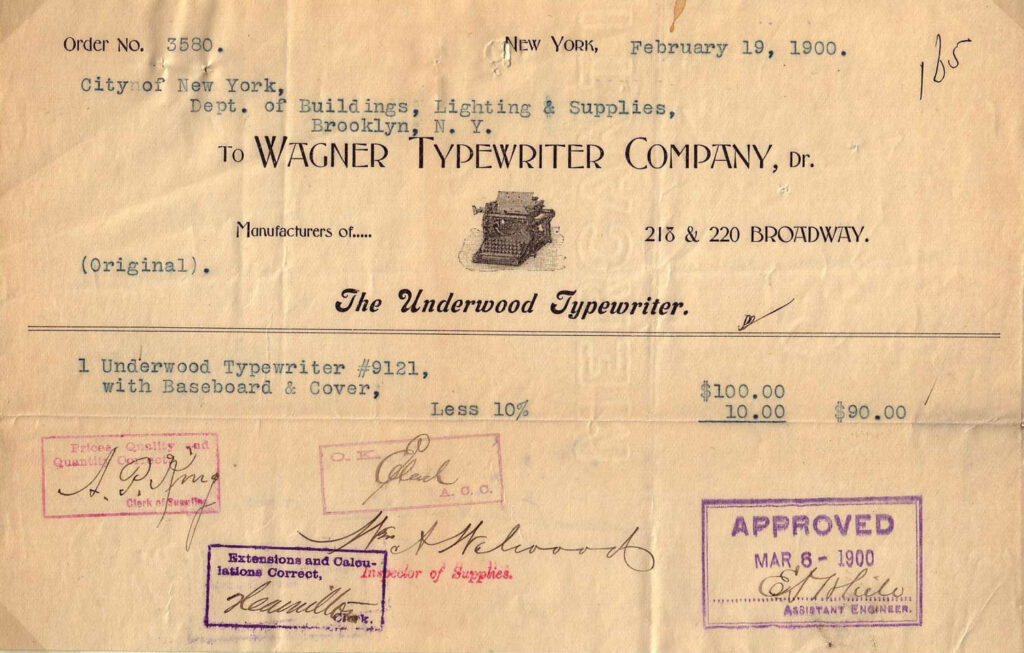 Order No. 3580. New York, February 19, 1900.
185
City of New York,
Dept. of Buildings, Lighting & Supplies,
Brooklyn, N. Y.
To WAGNER TYPEWRITER COMPANY, Dr.
Manufacturers of..... 218 & 220 BROADWAY.
(Original).
The Underwood Typewriter.
1 Underwood Typewriter #9121,
with Baseboard & Cover, $100.00
Less 10% 10.00 $90.00
Prices, Quality and
Quantity Correct.
A. P. King
Clerk of Supplies
O. K.
A. C. C.
Wm A Welwood
Inspector of Supplies.
Extensions and Calcu-
lations Correct,
Hamilton
Clerk.
APPROVED
MAR 6 - 1900
White
ASSISTANT ENGINEER.